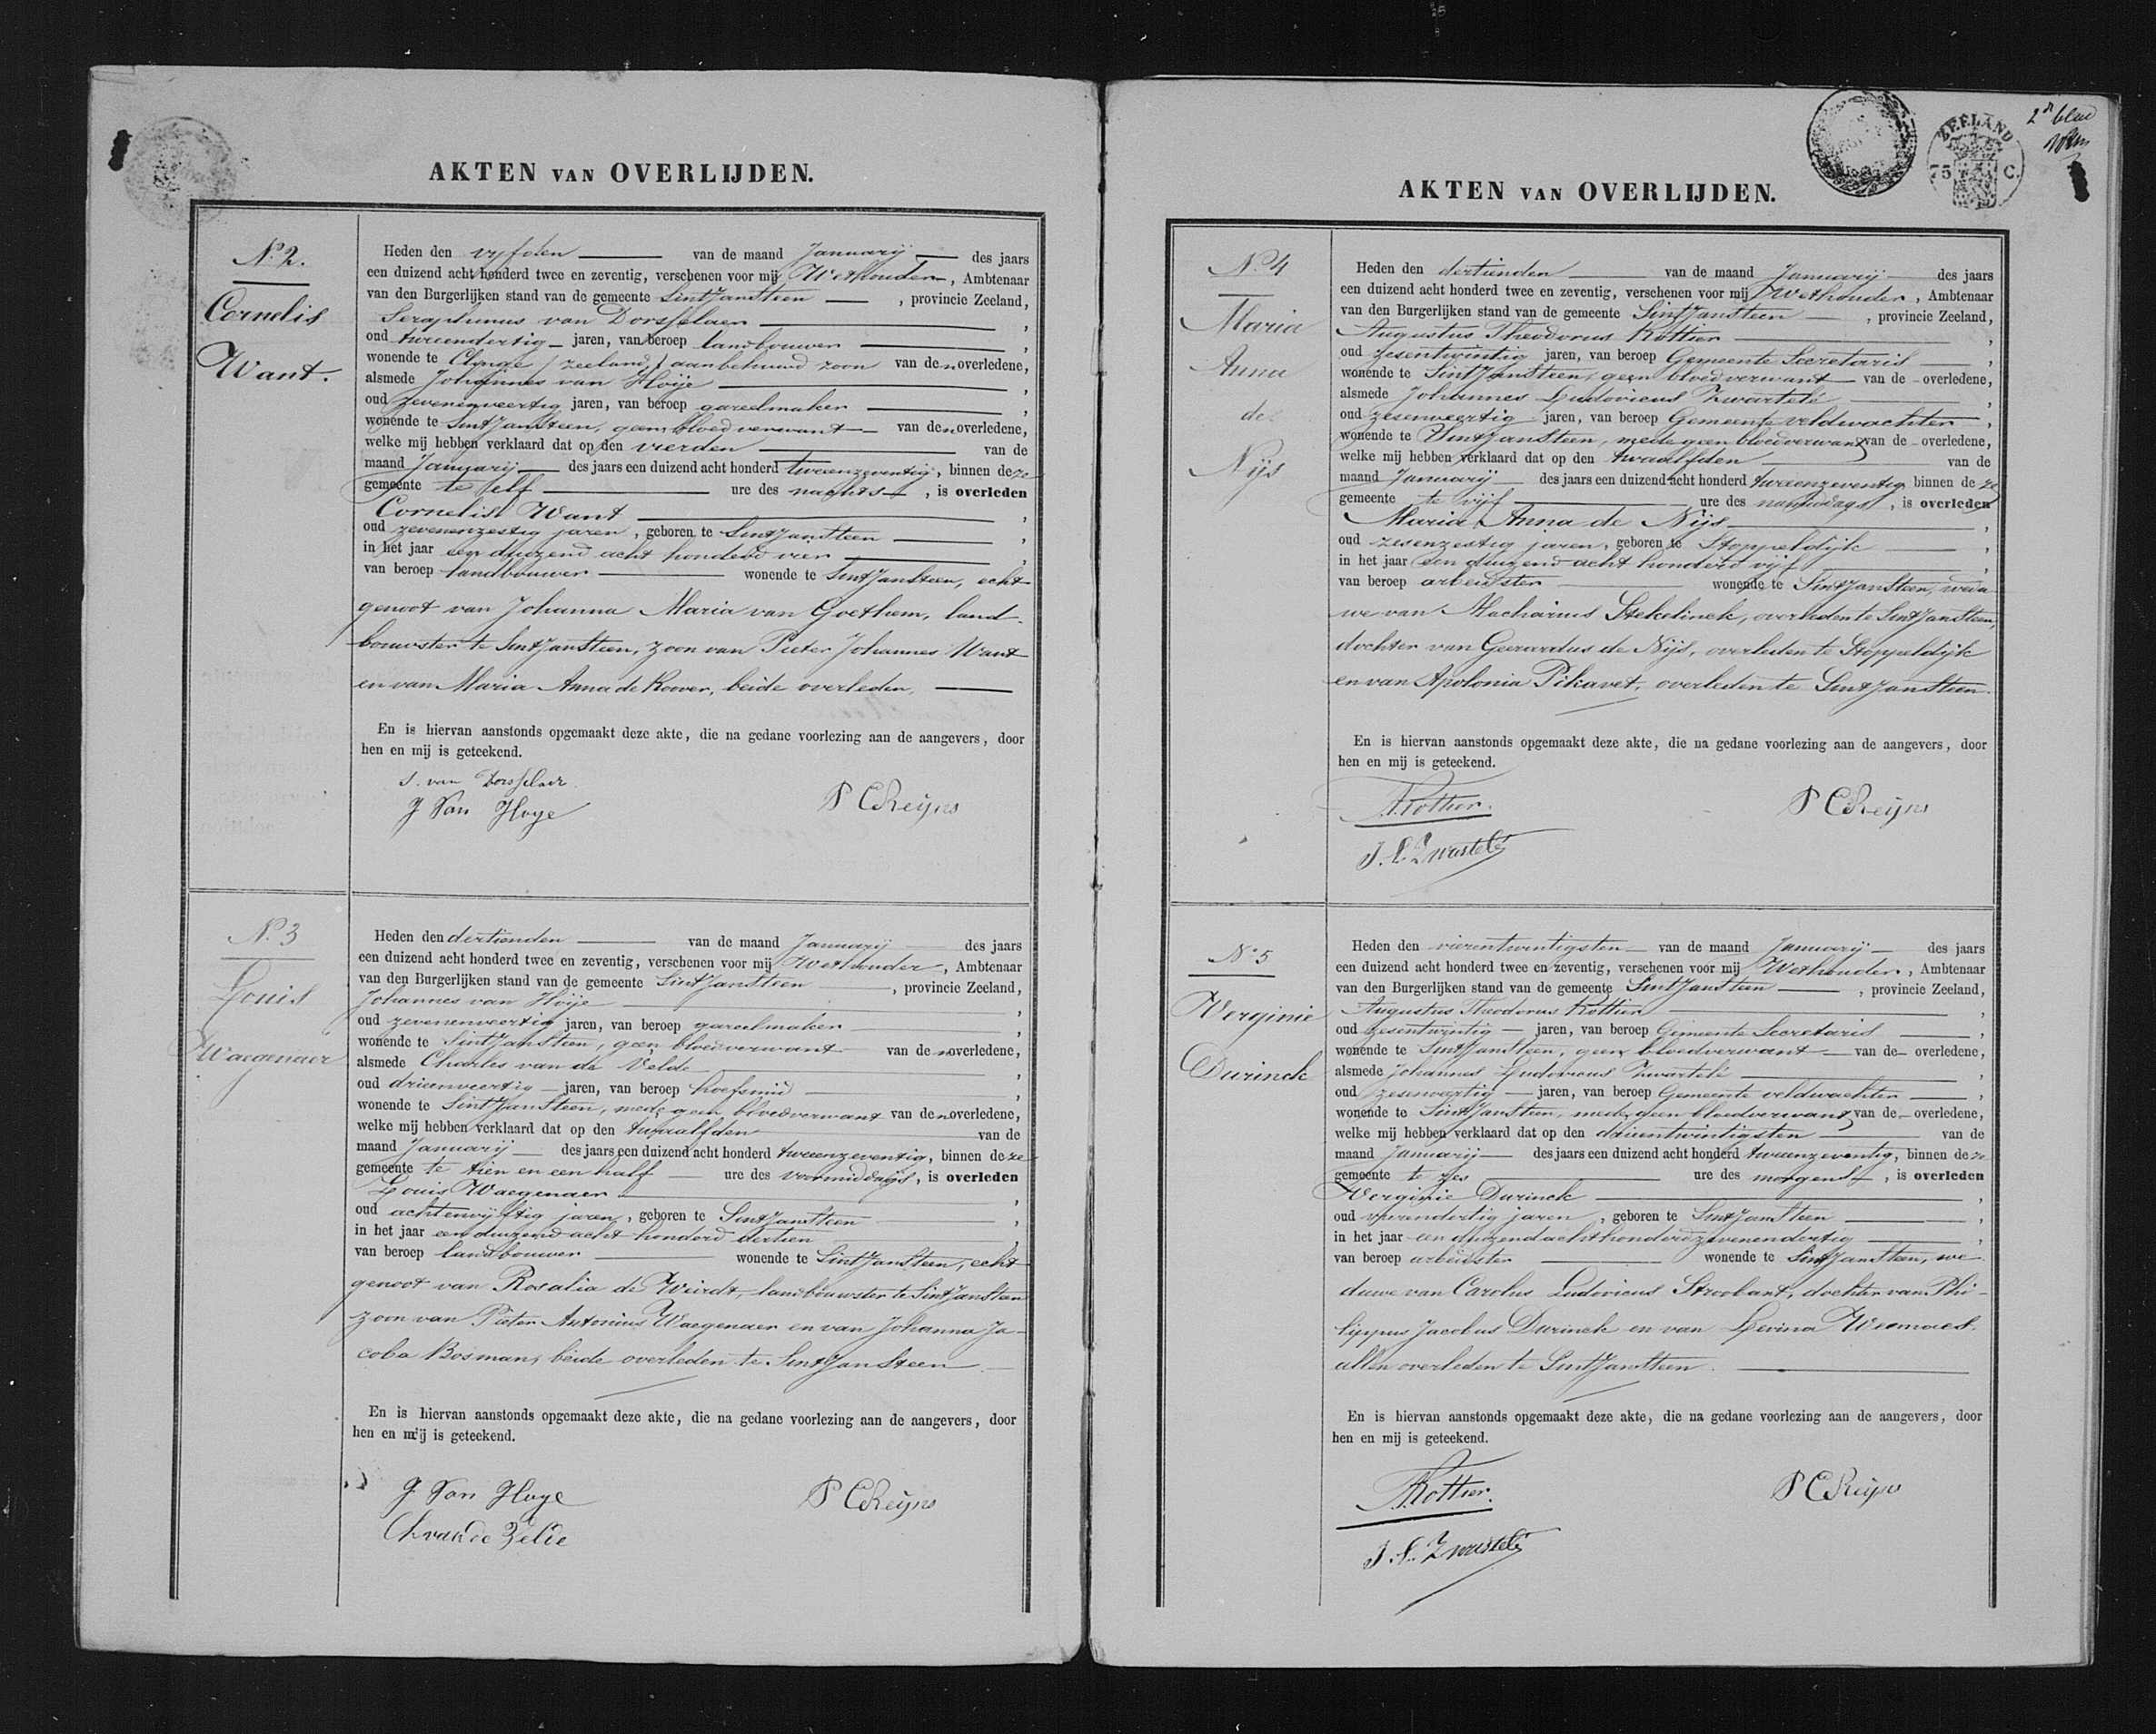 AKTEN VAN OVERLIJDEN.
No. 2.
Cornelis
Want.
Heden den vyfden van de maand Januarij des jaars
een duizend acht honderd twee en zeventig, verschenen voor mij Wethouder, Ambtenaar
van den Burgerlijken stand van de gemeente SintJansteen, provincie Zeeland,
Seraphinus van Dorsselaer,
oud tweendertig jaren, van beroep landbouwer,
wonende te Clynge / zeeland / aanbehuwd zoon van den overledene,
alsmede Johannes van Hoije,
oud zevenenveertig jaren, van beroep gareelmaker,
wonende te SintJansteen, geen bloedverwant van den overledene,
welke mij hebben verklaard dat op den vierden van de
maand Januarij des jaars een duizend acht honderd tweenzeventig, binnen deze
gemeente te elf ure des nachts, is overleden
Cornelis Want,
oud zevenenzestig jaren, geboren te SintJansteen,
in het jaar een duizend acht honderd vier,
van beroep landbouwer wonende te SintJansteen, echt
genoot van Johanna Maria van Goethem, land-
bouwster te SintJansteen, zoon van Pieter Johannes Want
en van Maria Anna de Koover, beide overleden,
En is hiervan aanstonds opgemaakt deze akte, die na gedane voorlezing aan de aangevers, door
hen en mij is geteekend.
S. van Dorsselaer
J Van Hoye
P C Reijns
No. 3
Louis
Waegenaer
Heden den dertienden van de maand Januarij des jaars
een duizend acht honderd twee en zeventig, verschenen voor mij Wethouder, Ambtenaar
van den Burgerlijken stand van de gemeente SintJansteen, provincie Zeeland,
Johannes van Hoije,
oud zevenenveertig jaren, van beroep gareelmaker,
wonende te SintJansteen, geen bloedverwant van den overledene,
alsmede Charles van de Velde,
oud drieenveertig jaren, van beroep hoefsmid,
wonende te SintJansteen, mede geen bloedverwant van den overledene,
welke mij hebben verklaard dat op den twaalfden van de
maand Januarij des jaars een duizend acht honderd tweenzeventig, binnen deze
gemeente te tien en een half ure des voormiddags, is overleden
Louis Waegenaer,
oud achtenvijftig jaren, geboren te SintJansteen,
in het jaar een duizend acht honderd dertien,
van beroep landbouwer wonende te SintJansteen, echt
genoot van Rosalia de Weirdt, landbouwster te SintJansteen
zoon van Pieter Antonius Waegenaer en van Johanna Ja-
coba Bosman, beide overleden te SintJansteen.
En is hiervan aanstonds opgemaakt deze akte, die na gedane voorlezing aan de aangevers, door
hen en mij is geteekend.
J Van Hoye
Ch van de Velde
P C Reijns
ZEELAND
75 C.
2e blad
AKTEN VAN OVERLIJDEN.
No. 4
Maria
Anna
de
Nijs
Heden den dertienden van de maand Januarij des jaars
een duizend acht honderd twee en zeventig, verschenen voor mij Wethouder, Ambtenaar
van den Burgerlijken stand van de gemeente SintJansteen, provincie Zeeland,
Augustus Theodorus Rottier,
oud zesentwintig jaren, van beroep Gemeente Secretaris,
wonende te SintJansteen, geen bloedverwant van de overledene,
alsmede Johannes Ludovicus Zwartelé,
oud zesenveertig jaren, van beroep Gemeente veldwachter,
wonende te SintJansteen, mede geen bloedverwant van de overledene,
welke mij hebben verklaard dat op den twaalfden van de
maand Januarij des jaars een duizend acht honderd tweenzeventig binnen deze
gemeente te vijf ure des namiddags, is overleden
Maria Anna de Nijs,
oud zesenzestig jaren, geboren te Stoppeldijk,
in het jaar een duizend acht honderd vijf,
van beroep arbeidster wonende te SintJansteen, wedu
we van Macharius Stekelinck, overleden te SintJansteen,
dochter van Geerardus de Nijs, overleden te Stoppeldijk
en van Apolonia Pikavet, overleden te SintJansteen.
En is hiervan aanstonds opgemaakt deze akte, die na gedane voorlezing aan de aangevers, door
hen en mij is geteekend.
A. Rottier.
J. L. Zwartelé
P C Reijns
No. 5
Verginie
Durinck
Heden den vierentwintigsten van de maand Januarij des jaars
een duizend acht honderd twee en zeventig, verschenen voor mij Wethouder, Ambtenaar
van den Burgerlijken stand van de gemeente SintJansteen, provincie Zeeland,
Augustus Theodorus Rottier,
oud zesentwintig jaren, van beroep Gemeente Secretaris,
wonende te SintJansteen, geen bloedverwant van de overledene,
alsmede Johannes Ludovicus Zwartelé,
oud zesenveertig jaren, van beroep Gemeente veldwachter,
wonende te SintJansteen, mede geen bloedverwant van de overledene,
welke mij hebben verklaard dat op den drieentwintigsten van de
maand Januarij des jaars een duizend acht honderd tweenzeventig, binnen deze
gemeente te zes ure des morgens, is overleden
Verginie Durinck,
oud vierendertig jaren, geboren te SintJansteen,
in het jaar een duizend acht honderd zevenendertig,
van beroep arbeidster wonende te SintJansteen, we
duwe van Carolus Ludovicus Stroobant, dochter van Phi-
lippus Jacobus Durinck en van Levina Weemaes.
allen overleden te SintJansteen.
En is hiervan aanstonds opgemaakt deze akte, die na gedane voorlezing aan de aangevers, door
hen en mij is geteekend.
A. Rottier.
J. L. Zwartelé
P C Reijns